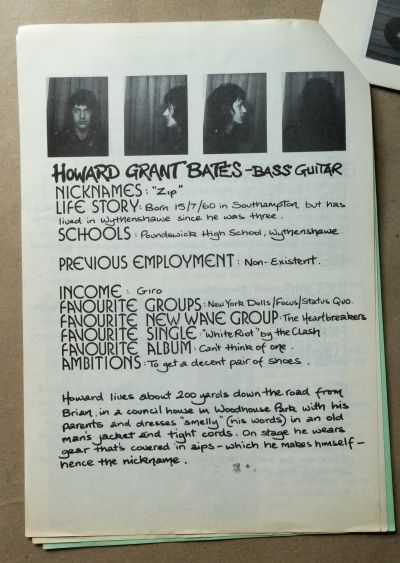 HOWARD GRANT BATES - BASS GUITAR
NICKNAMES : "Zip"
LIFE STORY : Born 15/7/60 in Southampton but has
lived in Wythenshawe since he was three.
SCHOOLS : Poundswick High School, Wythenshawe
PREVIOUS EMPLOYMENT : Non-Existent.
INCOME : Giro
FAVOURITE GROUPS : New York Dolls/Focus/Status Quo.
FAVOURITE NEW WAVE GROUP : The Heartbreakers
FAVOURITE SINGLE : "White Riot" by the Clash.
FAVOURITE ALBUM : Can't think of one.
AMBITIONS : To get a decent pair of shoes.
Howard lives about 200 yards down the road from
Brian, in a council house in Woodhouse Park with his
parents and dresses "smelly" (his words) in an old
man's jacket and tight cords. On stage he wears
gear that's covered in zips - which he makes himself -
hence the nickname.